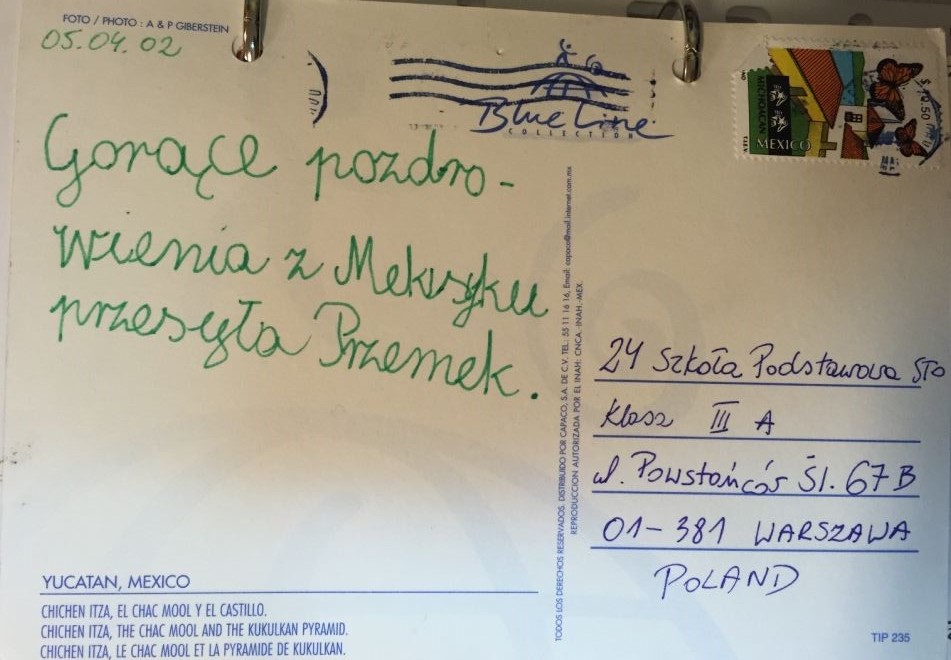 FOTO / PHOTO : A & P GIBERSTEIN
05.04.02
Gorące pozdro-
wienia z Meksyku
przesyła Przemek.
Blue Line
COLLECTION
MICHOACAN
MEXICO
$10.50
TODOS LOS DERECHOS RESERVADOS. DISTRIBUIDO POR CAPACO, S.A. DE C.V. TEL.: 55 11 16 16, Email: capaco@mail.internet.com.mx
REPRODUCCION AUTORIZADA POR EL INAH: CNCA.-INAH.-MEX.
24 Szkoła Podstawowa STO
Klasa III A
ul. Powstańców Śl. 67 B
01-381 WARSZAWA
POLAND
YUCATAN, MEXICO
CHICHEN ITZA, EL CHAC MOOL Y EL CASTILLO.
CHICHEN ITZA, THE CHAC MOOL AND THE KUKULKAN PYRAMID.
CHICHEN ITZA, LE CHAC MOOL ET LA PYRAMIDE DE KUKULKAN.
TIP 235